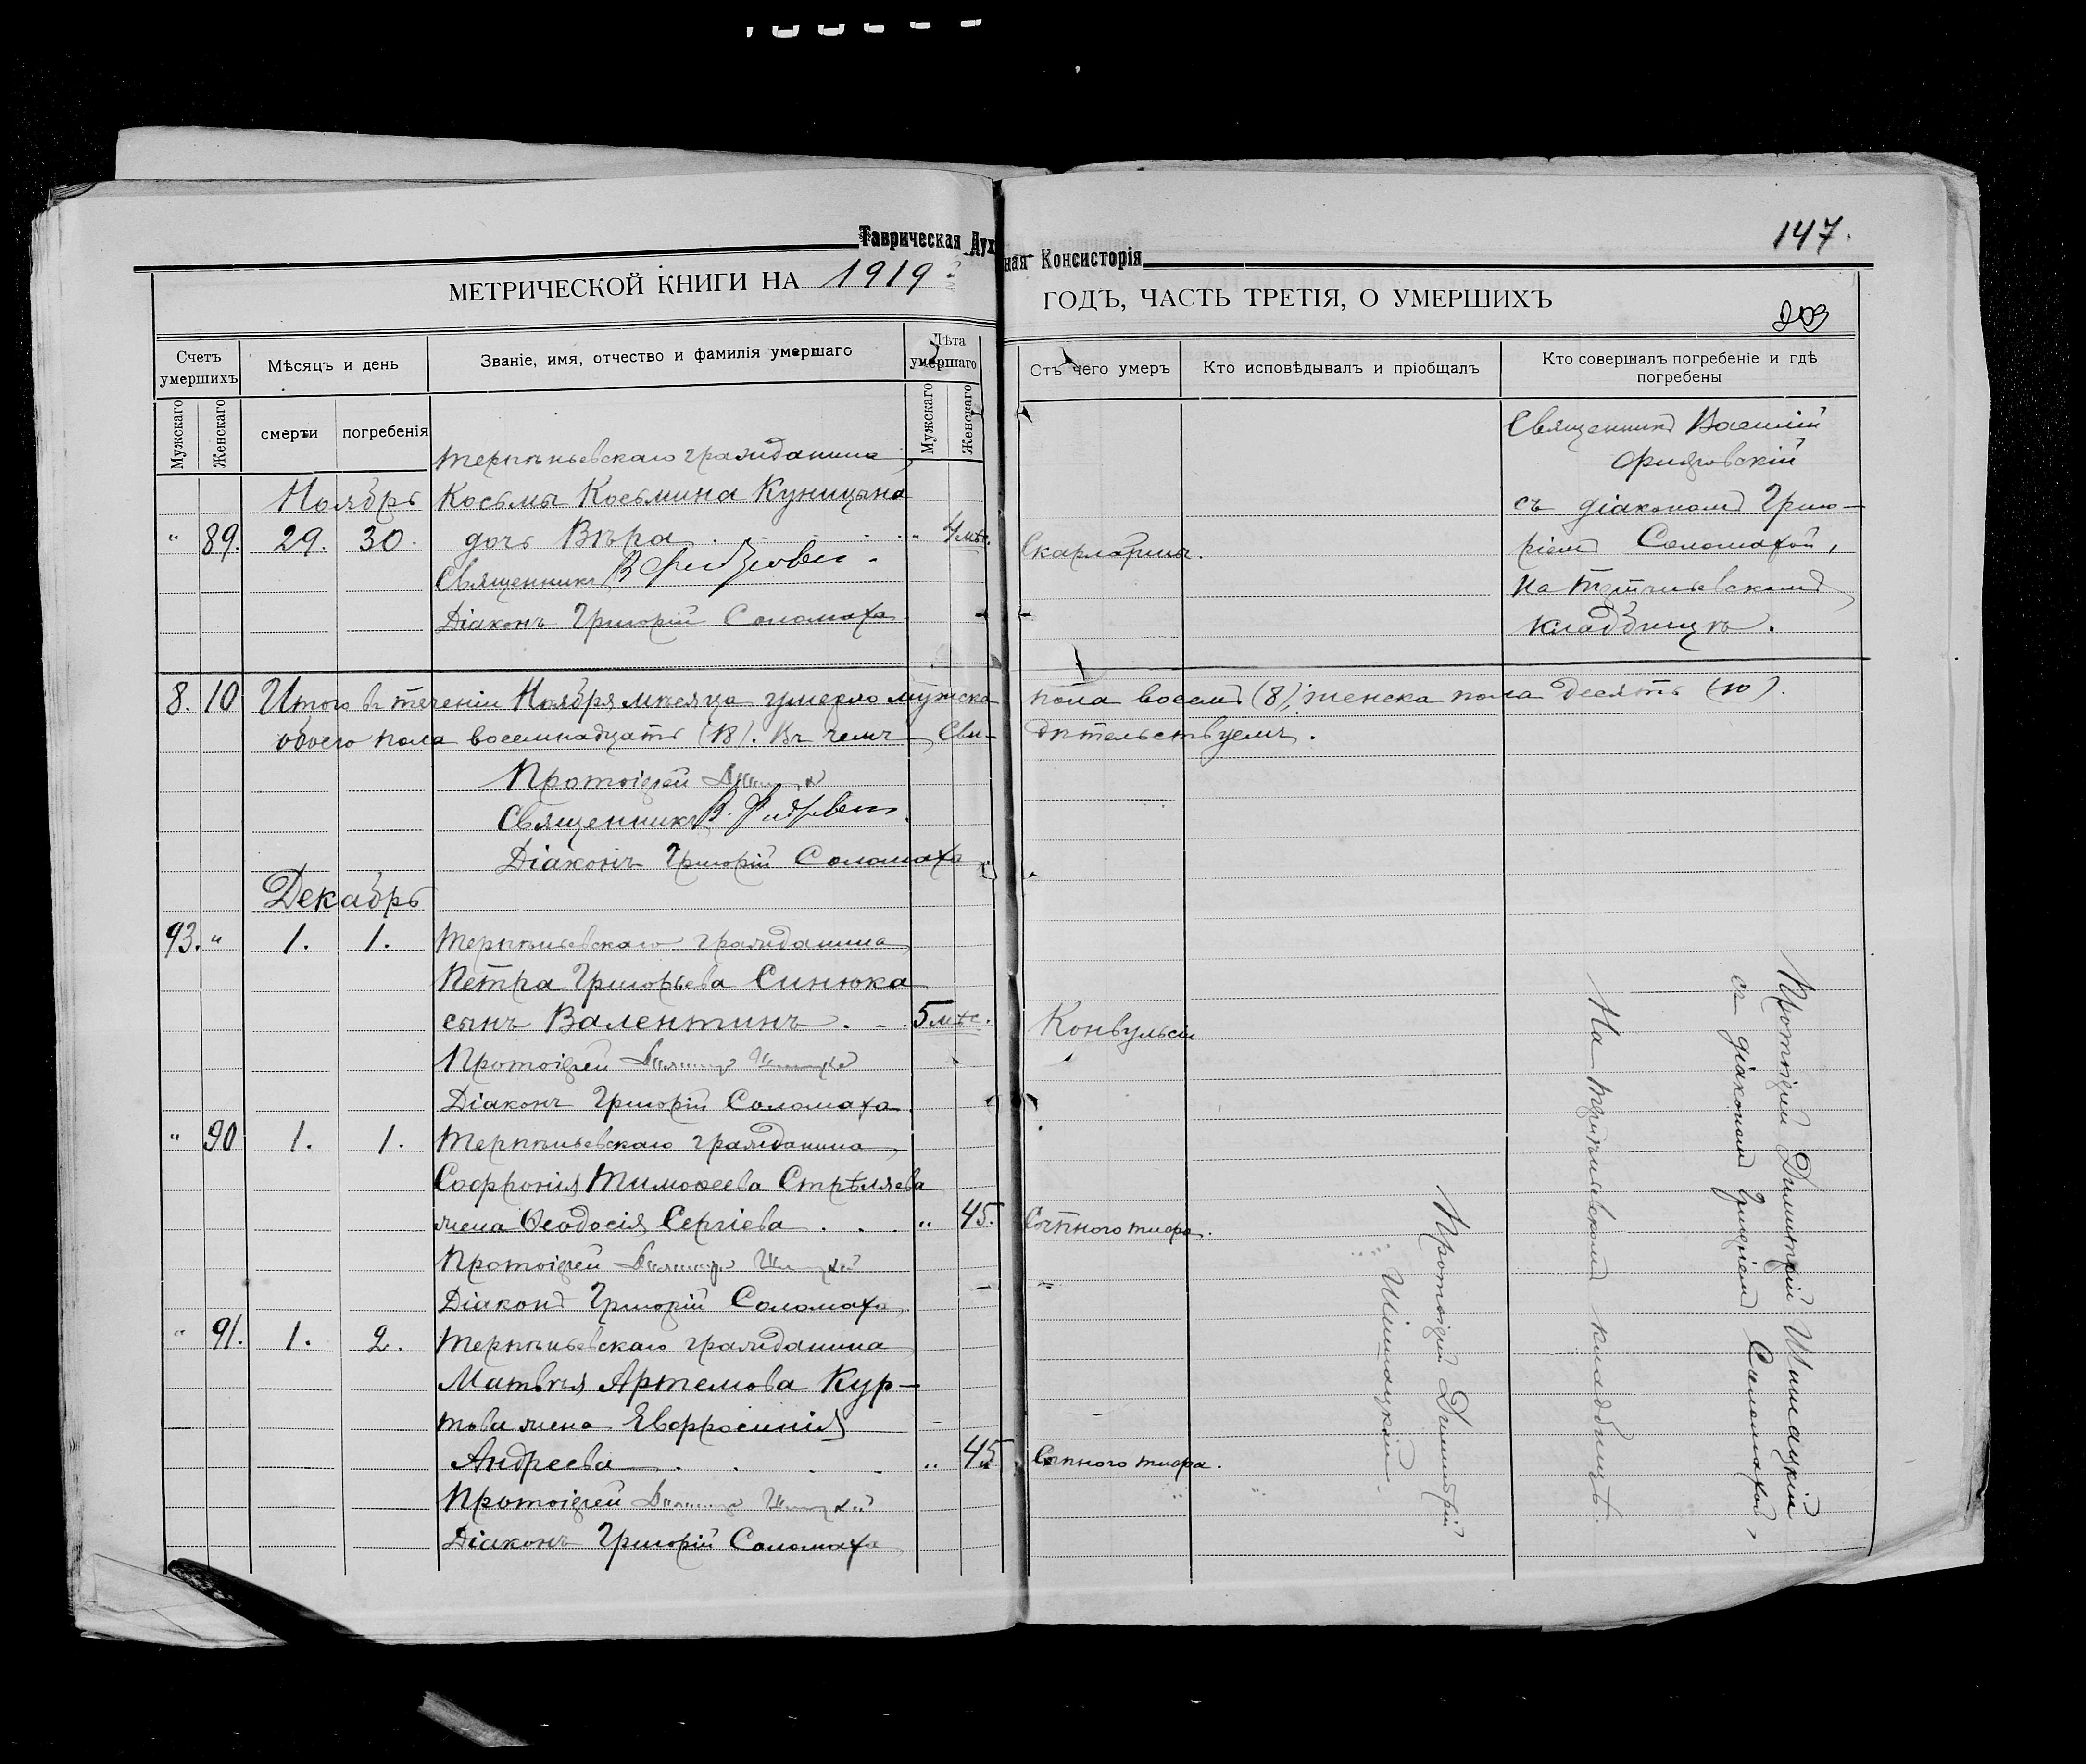 Таврическая Духовная Консисторія
147.
МЕТРИЧЕСКОЙ КНИГИ НА 1919 ГОДЪ, ЧАСТЬ ТРЕТІЯ, О УМЕРШИХЪ
203
Счетъ умершихъ
Мужскаго
Женскаго
Мѣсяцъ и день
смерти
погребенія
Званіе, имя, отчество и фамилія умершаго
Лѣта умершаго
Мужскаго
Женскаго
Отъ чего умеръ
Кто исповѣдывалъ и пріобщалъ
Кто совершалъ погребеніе и гдѣ погребены
Терпѣньевскаго гражданина
Ноябрь Косьмы Косьмина Куницына
" 89. 29. 30. дочь Вѣра " 4 мѣс. Скарлатины.
Священникъ В
Діаконъ Григорій Соломаха
Священникъ Василій
съ діакономъ Григо-
ріемъ Соломахой,
на Терпѣньевскомъ
кладбищѣ.
8. 10 Итого въ теченіи Ноября мѣсяца умерло мужска пола восемь (8), женска пола десять (10).
обоего пола восемнадцать (18). Въ чемъ Сви- дѣтельствуемъ.
Протоіерей
Священникъ В.
Діаконъ Григорій Соломаха
Декабрь
93. " 1. 1. Терпѣньевскаго гражданина
Петра Григорьева Синюка
сынъ Валентинъ 5 мѣс. Конвульсіи
Протоіерей
Діаконъ Григорій Соломаха
" 90 1. 1. Терпѣньевскаго гражданина
Софронія Тимоѳеева Стрѣляева
жена Ѳеодосія Сергіева " 45. Сыпного тифа.
Протоіерей
Діаконъ Григорій Соломаха
" 91. 1. 2. Терпѣньевскаго гражданина
Матвѣя Артемова Кур-
това жена Евфросинія
Андреева " 45 Сыпного тифа.
Протоіерей
Діаконъ Григорій Соломаха
Протоіерей Димитрій
Шишацкій
Протоіерей Димитрій Шишацкій
съ діакономъ Григоріемъ Соломахой,
На Терпѣньевскомъ кладбищѣ.